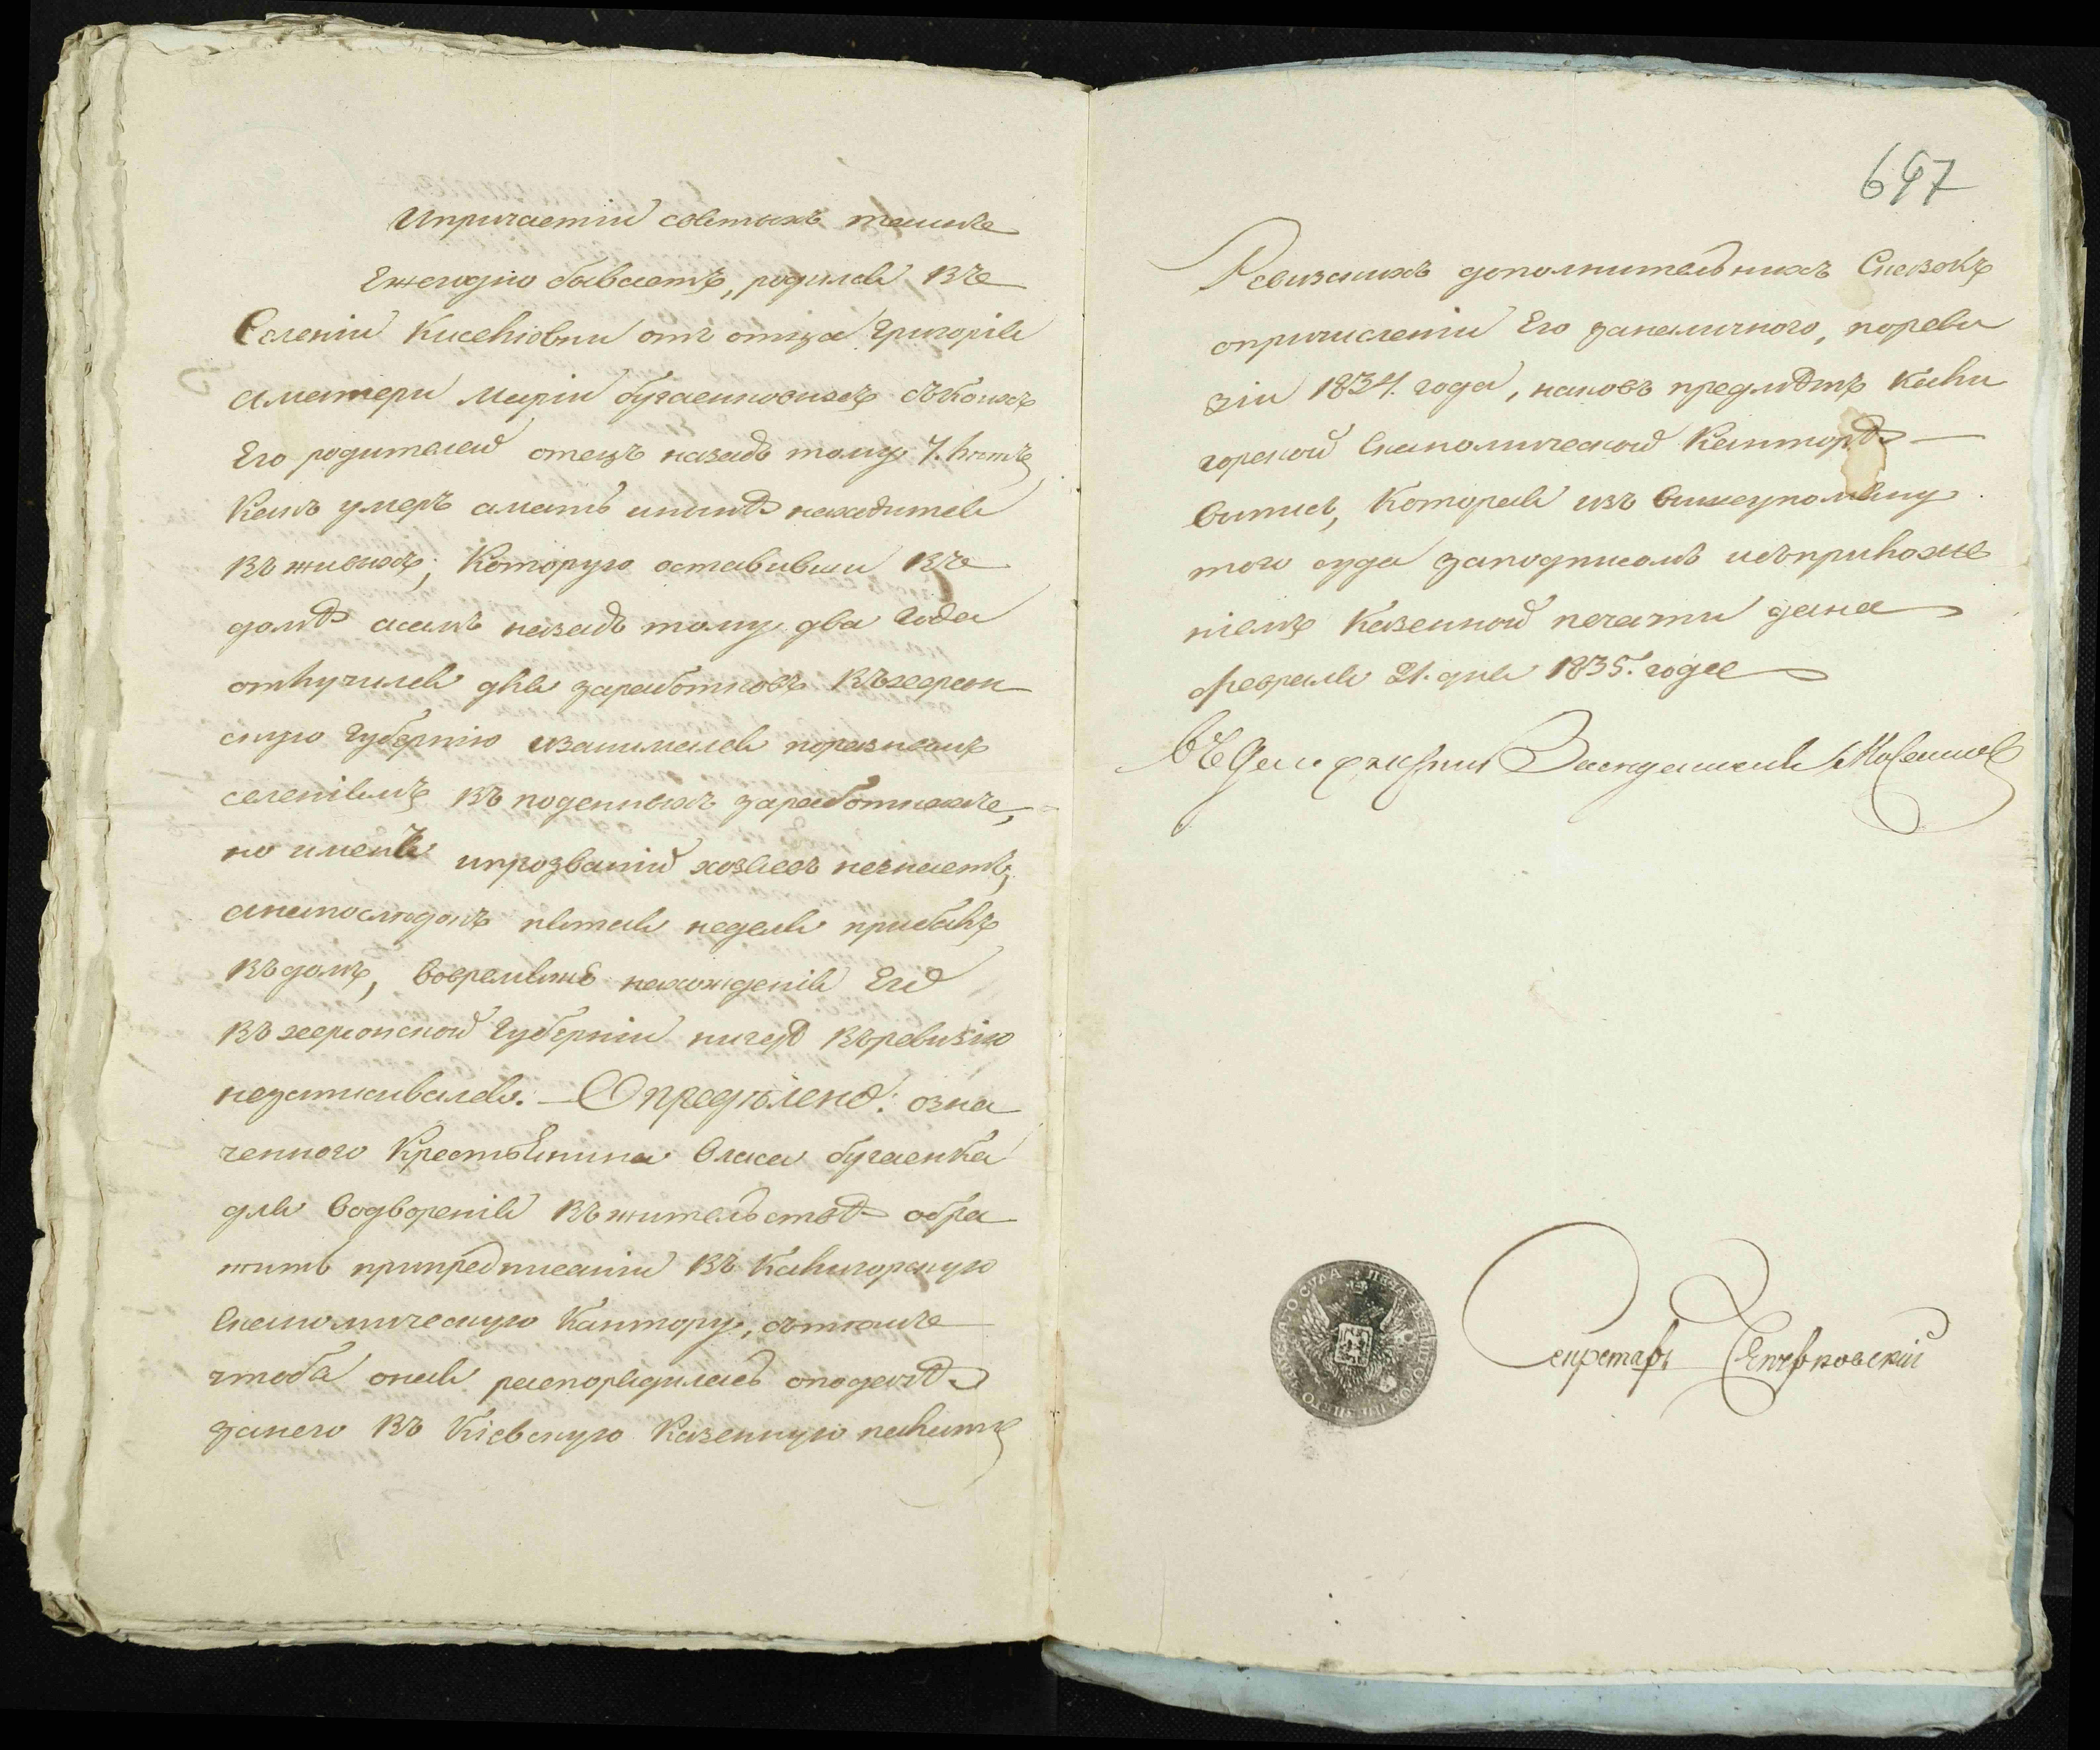 Ипричастіи светыхъ таинъ
Ежегодно бываетъ, родился въ
Селеніи Киселіовки отъ отца Григорія
аматери Маріи бугаенковихъ съкоихъ
Его родителей отецъ назадъ тому 7. летъ
Какъ умеръ амать инынѣ находится
въживихъ, Которую оставивши въ
домѣ асамъ назадъ тому два Года
отлучился для заработковъ въхерсон
скую Губернію изанимался поразнымъ
селеніямъ въ поденныхъ заработкахъ,
но именъ ипрозваній хозяевъ незнаетъ,
анапоследокъ пятая неделя прибылъ
въдомъ, вовремяжъ нахожденія Его
въхерсонской Губерніи нигдѣ въревизію
незаписивался. — Определено: озна
ченного Крестьянина Власа бугаенка
для водворенія въжительствѣ обра
тить припредписаніи въ Калигорскую
Економическую Кантору, стъмъ
чтобы оная распорядилась оподачѣ
занего въ Кіевскую Казенную палату
697
Ревизкихъ дополнительнихъ Сказокъ
опричисленіи Его заналичного, пореви
зіи 1834. года, каковъ предметъ Кали
горской Економической Канторѣ —
витись, Которая изъ вишеупомяну
того суда заподписомъ исъприложе
ніемъ Казенной печати дана
февраля 21. дня 1835. года
Заседатель
Секретарь